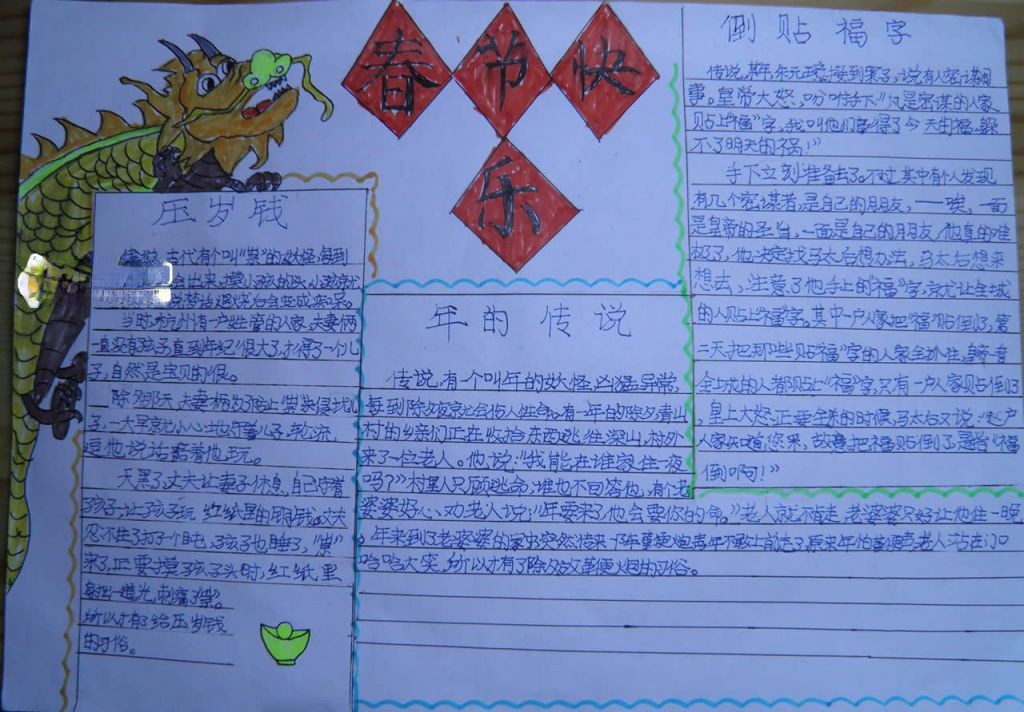 春节快
乐
压岁钱
古代有个叫"祟"的妖怪,每到
出来,摸小孩的头,小孩就
当时,杭州有一户姓管的人家,夫妻俩
一直没有孩子,直到年纪很大了,才得了一个儿
子,自然是宝贝的很。
除夕那天,夫妻俩为了防止"祟"来侵扰儿
子,一大早就小心地守着儿子,轮流
逗他,说话,陪着他玩。
天黑了,丈夫让妻子休息,自己守着
孩子,让孩子玩红纸里的铜钱。丈夫
忍不住了打了个盹,孩子也睡了,"祟"
来了,正要摸孩子头时,红纸里
射出一道光,刺痛了"祟"。
所以才有了给压岁钱
的习俗。
年的传说
传说,有一个叫年的妖怪,凶猛异常,
每到除夕夜就会伤人性命。有一年的除夕,青山
村的乡亲们正在收拾东西逃往深山,村外
来了一位老人。他说:"我能在谁家住一夜
吗?"村里人只顾逃命,谁也不回答他,有个老
婆婆好心劝老人说:"年要来了,他会要你的命。"老人就不肯走,老婆婆只好让他住一晚
。年来到了老婆婆的家中,突然传来
哈哈大笑,所以才有了除夕放鞭炮的习俗。
倒贴福字
传说,某年,朱元璋接到密了,说有人密谋闹
事。皇帝大怒,吩咐手下:"凡是密谋的人家
贴上"福"字,我叫他们享得了今天的福,躲
不了明天的祸!"
手下立刻准备去了。不过,其中有个人发现
有几个密谋者,是自己的朋友,——唉,一面
是皇帝的圣旨,一面是自己的朋友,他真的难
极了,他决定找马太后想办法,马太后想来
想去,注意了他手上的"福"字,就让全城
的人贴上"福"字。其中一户人家把"福"贴倒了,第
二天,把那些贴"福"字的人家全抓住,皇帝一看
全城的人都贴上"福"字,只有一户人家贴倒了
,皇上大怒,正要全杀的时候,马太后又说:"这户
人家知道您来,故意把福贴倒了,是省"福
倒啊!"